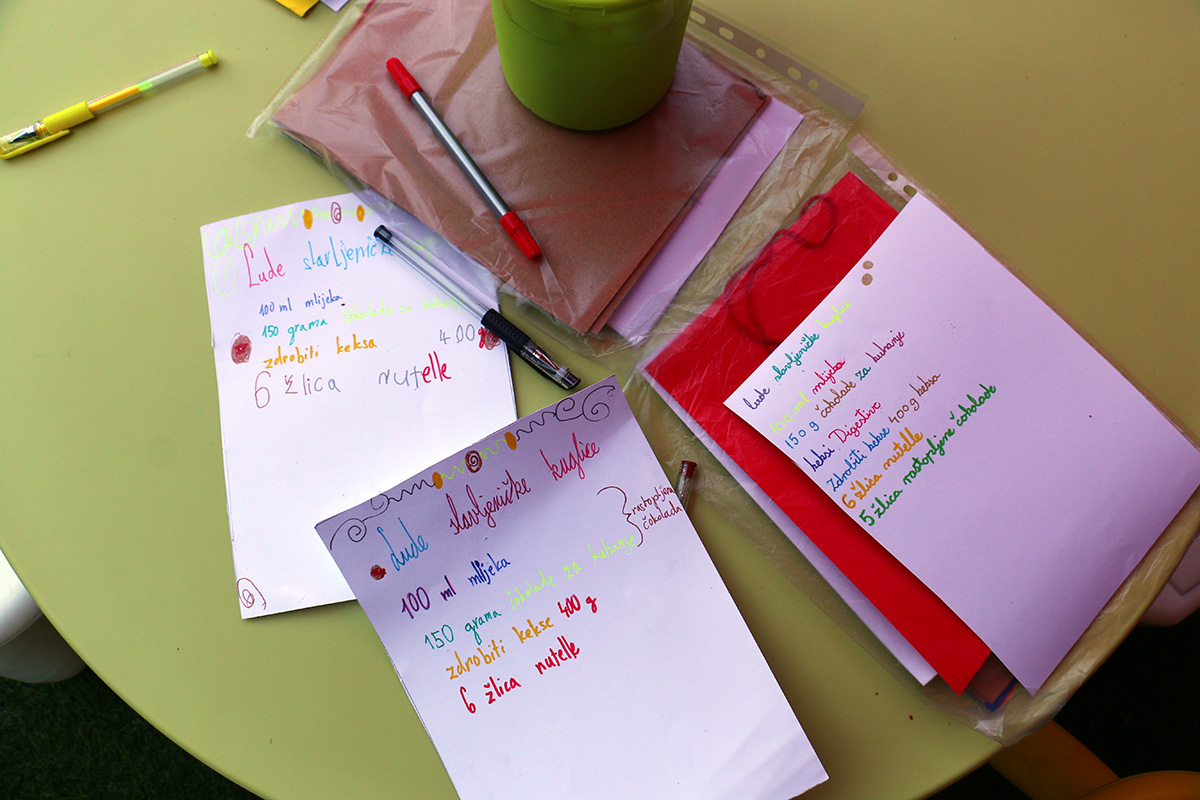 Lude slavljeničke
100 ml mlijeka
150 grama čokolade za kuhanje
zdrobiti keksa 400 g
6 žlica nutelle
Lude slavljeničke kuglice
100 ml mlijeka
150 grama čokolade za kuhanje
rastopljena
čokolada
zdrobiti kekse 400 g
6 žlica nutelle
lude slavljeničke kuglice
100 ml mlijeka
150 g čokolade za kuhanje
keksi Digestive
Zdrobiti kekse 400 g keksa
6 žlica nutelle
5 žlica rastopljene čokolade